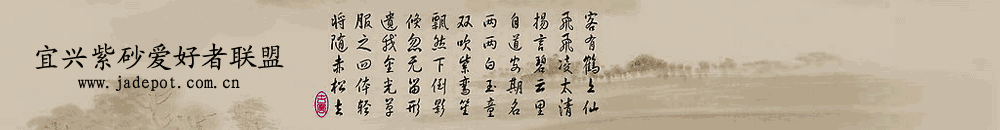 宜兴紫砂爱好者联盟
www.jadepot.com.cn
客有鹤上仙
飞飞凌太清
揚言碧云里
自道安期名
两两白玉童
双吹紫鸾笙
飘然下倒影
倏忽无留形
遗我金光草
服之四体轻
将随赤松去